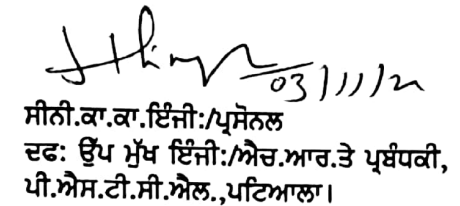 03/11/2
ਸੀਨੀ.ਕਾ.ਕਾ.ਇੰਜੀ:/ਪ੍ਰਸੋਨਲ
ਦਫ: ਉੱਪ ਮੁੱਖ ਇੰਜੀ:/ਐਚ.ਆਰ.ਤੇ ਪ੍ਰਬੰਧਕੀ,
ਪੀ.ਐਸ.ਟੀ.ਸੀ.ਐਲ.,ਪਟਿਆਲਾ।